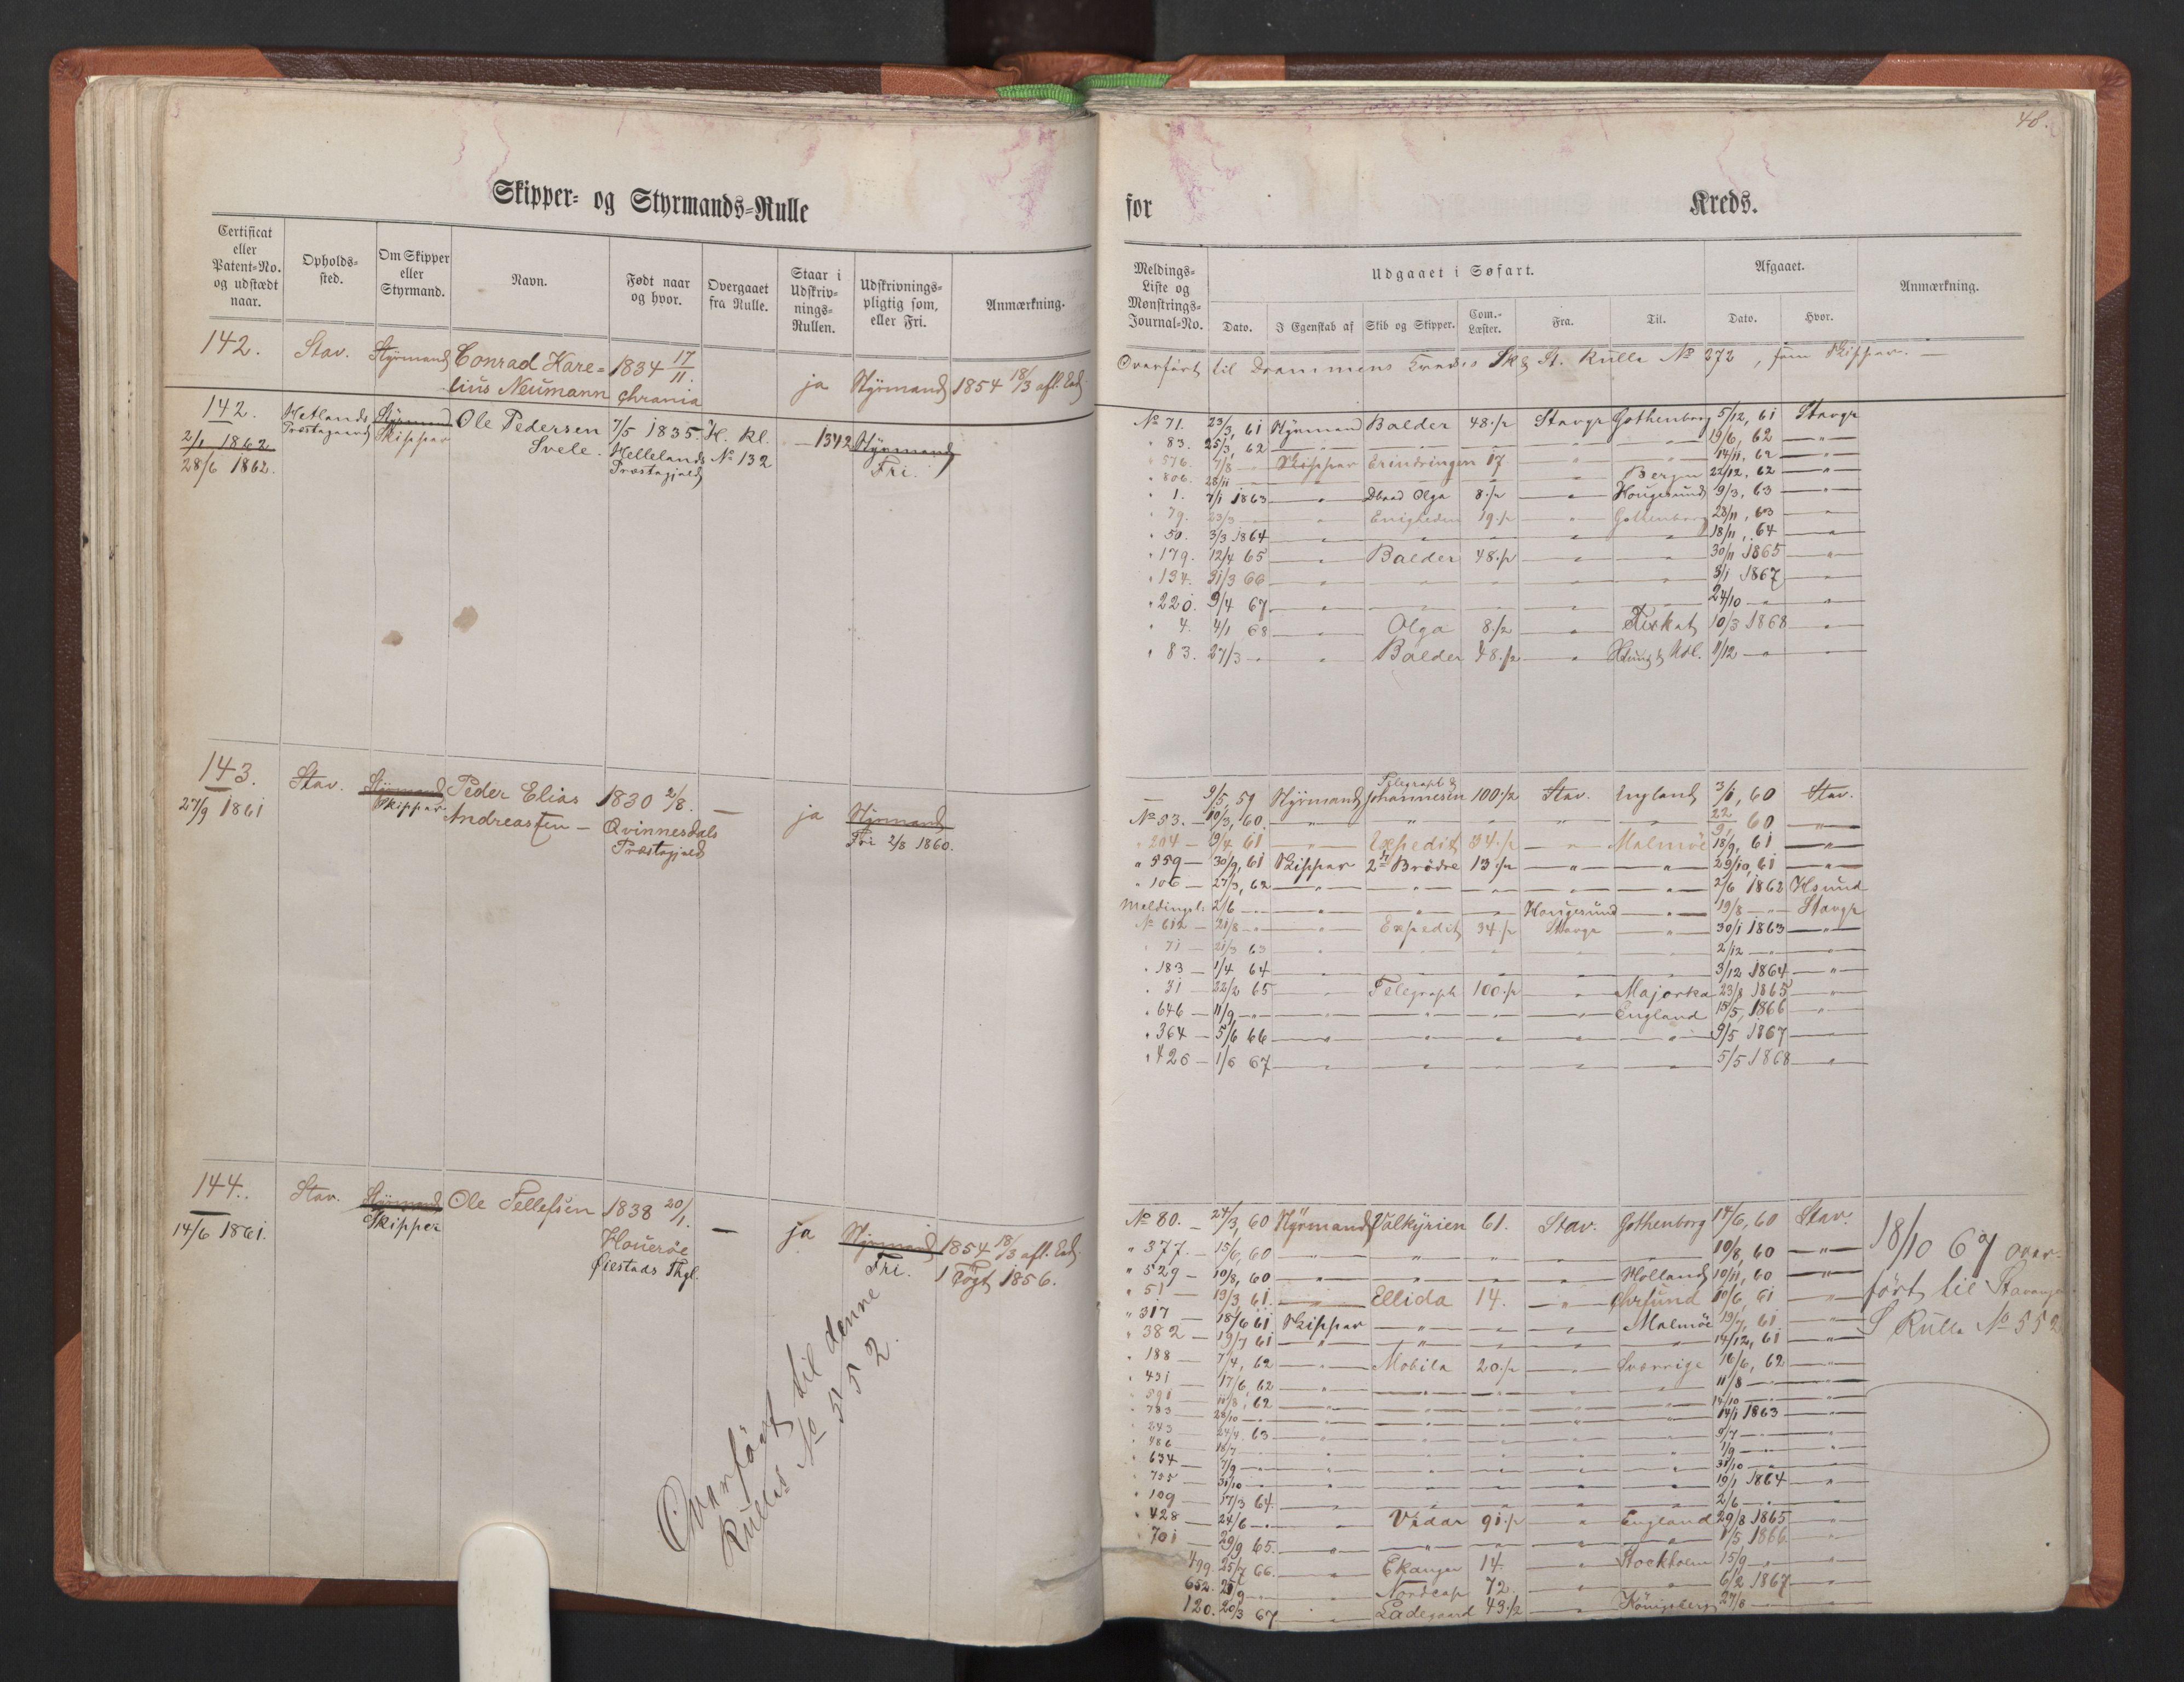 48.
Skipper- og Styrmands-Rulle
for
Kreds.
Certificat eller Patent-No. og udstædt naar.
Opholds-sted.
Om Skipper eller Styrmand.
Navn.
Født naar og hvor.
Overgaaet fra Rulle.
Staar i Udskriv-nings-Rullen.
Udskrivnings-pligtig som, eller Fri.
Anmærkning.
Meldings-Liste og Mønstrings-Journal-No.
Udgaaet i Søfart.
Dato.
I Egenskab af
Skib og Skipper.
Com.-Læster.
Fra.
Til.
Afgaaet.
Dato.
Hvor.
Anmærkning.
142. Stav. Styrmand Conrad Kare= 1834 17/11.
lius Neumann Chrania ja Styrmand 1854 18/3 afl. Ed.
Overført til Drammens Kredses Sk & St. Rulle No 272, som Skipper. —
142. Hetlands Styrmand Ole Pedersen 7/5 1835. H. Kl. — 1342 Styrmand
2/1 1862 Præstegaard Skipper Svele. Hellelands No 132 Fri.
28/6 1862. Præstegjeld
No 71. 23/3, 61 Styrmand Balder 48./2 Stavgr Gothenborg 5/12, 61 Stavgr
" 83. 25/3, 62 — " — — — " — " 19/6, 62 — " —
" 576. 7/8 — Skipper Erindringen 17. " " 14/11, 62 — " —
" 806. 28/11 — — — — " Bergen 22/12, 62 — " —
" 1. 7/1 1863 — " Olga 8./2 — " Hougesund 9/3, 63 — " —
" 79. 23/3 — " Enigheden 19./2 — " Gothenborg 28/11, 63 — " —
" 50. 3/3 1864 — " — " — " — " — " 18/11, 64 — " —
" 179. 12/4 65 — " Balder 48./2 — " — " 30/11 1865 — " —
" 134. 31/3 66 — " — " — " — " — " 3/1 1867 — " —
" 220. 9/4 67 — " — " — " — " — " 24/10 — " — " —
" 4. 4/1 68 — " Olga 8./2 — " Fiskat 10/3 1868 — " —
" 83. 27/3 — " — " Balder 48./2 — " 1/12 — " — " —
143. Stav. Styrmand Peder Elias 1830 2/8. — ja Styrmand
27/9 1861 Skipper Andreassen — Qvinnesdals Fri 2/8 1860.
Præstegjeld
— 9/5, 59 Styrmand Telegraph & Johannesen 100./2 Stav. England 3/1, 60 Stav.
No 53. — 10/3, 60. — " — " — " — " — " 22/9, 60 — " —
" 204 — 9/4, 61 — " Expedit 34./2 — " Malmöe 18/9, 61 — " —
" 559 — 30/9, 61 Skipper 2de Brödre 13./2 — " — " 29/10, 61 — " —
" 106 — 27/3, 62 — " — " — " — " — " 2/6 1862 Hsund
Meldingsl: 2/6 — " — " — " — Hougesund — " 19/8 — " Stavgr
No 612 — 21/8 — " — " Expedit 34./2 Stavgr — " 30/1 1863 — " —
" 71 — 21/3 63 — " — — — — 2/12 — " — " —
" 183 — 1/4 64 — " — " — " — " — " 3/12 1864 — " —
" 31 — 22/2 65 — " Telegraph 100./2 — " Majorka 23/8 1865 — " —
" 646 — 11/9 — " — " — " — " — " England 18/5, 1866 — " —
" 364 — 5/6 66 — " — " — " — " — " 9/5 1867 — " —
" 426 — 1/6 67 — " — " — " — " — " 5/5 1868 — " —
144. Stav. Styrmand Ole Tellefsen 1838 20/1. — ja Styrmand 1854 18/3 afl. Ed.
14/6 1861. Skipper Houeröe Fri. 1 Togt 1856.
Øiestads Thgl.
Overført til denne
Rulles No 552.
No 80. — 24/3, 60 Styrmand Valkyrien 61. Stav. Gothenborg 14/6, 60 Stav.
" 377. — 15/6, 60 — " — " — " — " — " 10/8, 60 — " —
" 529 — 10/8, 60 — " — " — " — " Holland 10/11, 60 — " —
" 51 — 19/3, 61. — " Ellida 14. — " Chrsund 10/6, 61 — " —
" 317 — 18/6 61 Skipper — " — — Malmöe 19/7, 61 — " —
" 382 — 19/7 61 — " — " — — — 14/12, 61 — " —
" 188 — 7/4, 62 — " Mobila 20./2 — Sverrige 16/6, 62 — " —
" 431 — 17/6, 62 — " — " — " — " — " 11/8 — " —
" 591 — 11/8, 62 — " — " — " — " — " 14/10 — " —
" 783 — 28/10 — " — " — " — " — " 14/1 1863 — " —
" 243 — 24/4 63 — " — " — " — " — " 9/7 — " —
" 486 — 18/7 — " — " — " — " — " 1/9 — " —
" 634 — 7/9 — " — " — " — " — " 31/10 — " —
" 755 — 31/10 — " — " — " — " — " 19/1 1864 — " —
" 109 — 17/3 64 — " — " — " — " — " 2/6 — " —
" 428 — 24/6 — " — " Vidar 91./2 — " England 29/8 1865 — " —
" 701 — 29/9 65. — " — " — " — " — " 1/5 1866 — " —
499. 25/7 66. — " Ekanger 14. — " Stockholm 15/9 — " —
652. 25/9 — " — " Nordcap 72. — " — " 6/2 1867 — " —
120. 20/3 67 — " Ladegaard 43./2 — " Königsberg 27/8 — " —
18/10 69 over-
ført til Stavanger
S Rulle No 552